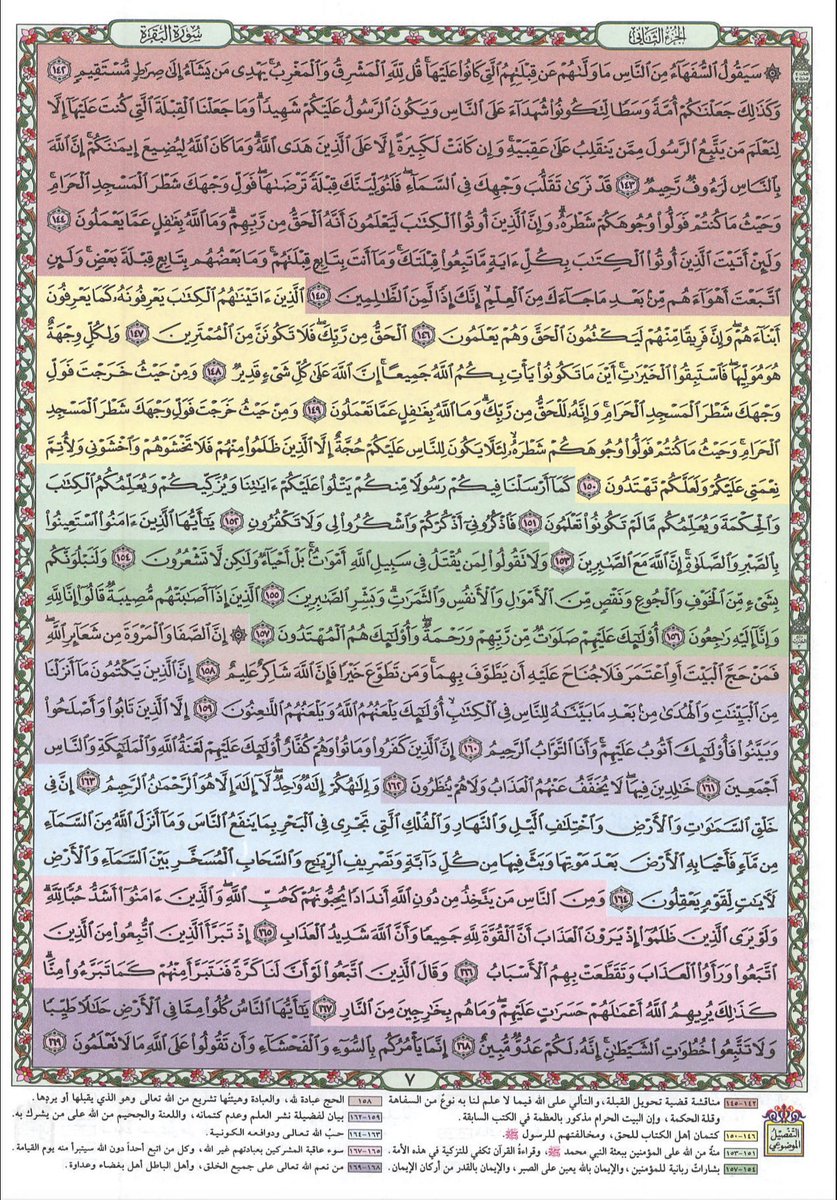 الجزء الثاني
سورة البقرة
۞ سَيَقُولُ السُّفَهَاءُ مِنَ النَّاسِ مَا وَلَّىٰهُمْ عَن قِبْلَتِهِمُ الَّتِي كَانُوا عَلَيْهَا ۚ قُل لِّلَّهِ الْمَشْرِقُ وَالْمَغْرِبُ ۚ يَهْدِي مَن يَشَاءُ إِلَىٰ صِرَاطٍ مُّسْتَقِيمٍ ١٤٢
وَكَذَٰلِكَ جَعَلْنَاكُمْ أُمَّةً وَسَطًا لِّتَكُونُوا شُهَدَاءَ عَلَى النَّاسِ وَيَكُونَ الرَّسُولُ عَلَيْكُمْ شَهِيدًا ۗ وَمَا جَعَلْنَا الْقِبْلَةَ الَّتِي كُنتَ عَلَيْهَا إِلَّا
لِنَعْلَمَ مَن يَتَّبِعُ الرَّسُولَ مِمَّن يَنقَلِبُ عَلَىٰ عَقِبَيْهِ ۚ وَإِن كَانَتْ لَكَبِيرَةً إِلَّا عَلَى الَّذِينَ هَدَى اللَّهُ ۗ وَمَا كَانَ اللَّهُ لِيُضِيعَ إِيمَانَكُمْ ۚ إِنَّ اللَّهَ
بِالنَّاسِ لَرَءُوفٌ رَّحِيمٌ ١٤٣ قَدْ نَرَىٰ تَقَلُّبَ وَجْهِكَ فِي السَّمَاءِ ۖ فَلَنُوَلِّيَنَّكَ قِبْلَةً تَرْضَاهَا ۚ فَوَلِّ وَجْهَكَ شَطْرَ الْمَسْجِدِ الْحَرَامِ ۚ
وَحَيْثُ مَا كُنتُمْ فَوَلُّوا وُجُوهَكُمْ شَطْرَهُ ۗ وَإِنَّ الَّذِينَ أُوتُوا الْكِتَابَ لَيَعْلَمُونَ أَنَّهُ الْحَقُّ مِن رَّبِّهِمْ ۗ وَمَا اللَّهُ بِغَافِلٍ عَمَّا يَعْمَلُونَ ١٤٤
وَلَئِنْ أَتَيْتَ الَّذِينَ أُوتُوا الْكِتَابَ بِكُلِّ ءَايَةٍ مَّا تَبِعُوا قِبْلَتَكَ ۚ وَمَا أَنتَ بِتَابِعٍ قِبْلَتَهُمْ ۚ وَمَا بَعْضُهُم بِتَابِعٍ قِبْلَةَ بَعْضٍ ۚ وَلَئِنِ
اتَّبَعْتَ أَهْوَاءَهُم مِّن بَعْدِ مَا جَاءَكَ مِنَ الْعِلْمِ ۙ إِنَّكَ إِذًا لَّمِنَ الظَّالِمِينَ ١٤٥ الَّذِينَ ءَاتَيْنَاهُمُ الْكِتَابَ يَعْرِفُونَهُ كَمَا يَعْرِفُونَ
أَبْنَاءَهُمْ ۖ وَإِنَّ فَرِيقًا مِّنْهُمْ لَيَكْتُمُونَ الْحَقَّ وَهُمْ يَعْلَمُونَ ١٤٦ الْحَقُّ مِن رَّبِّكَ ۖ فَلَا تَكُونَنَّ مِنَ الْمُمْتَرِينَ ١٤٧ وَلِكُلٍّ وِجْهَةٌ
هُوَ مُوَلِّيهَا ۖ فَاسْتَبِقُوا الْخَيْرَاتِ ۚ أَيْنَ مَا تَكُونُوا يَأْتِ بِكُمُ اللَّهُ جَمِيعًا ۚ إِنَّ اللَّهَ عَلَىٰ كُلِّ شَيْءٍ قَدِيرٌ ١٤٨ وَمِنْ حَيْثُ خَرَجْتَ فَوَلِّ
وَجْهَكَ شَطْرَ الْمَسْجِدِ الْحَرَامِ ۖ وَإِنَّهُ لَلْحَقُّ مِن رَّبِّكَ ۗ وَمَا اللَّهُ بِغَافِلٍ عَمَّا تَعْمَلُونَ ١٤٩ وَمِنْ حَيْثُ خَرَجْتَ فَوَلِّ وَجْهَكَ شَطْرَ الْمَسْجِدِ
الْحَرَامِ ۚ وَحَيْثُ مَا كُنتُمْ فَوَلُّوا وُجُوهَكُمْ شَطْرَهُ لِئَلَّا يَكُونَ لِلنَّاسِ عَلَيْكُمْ حُجَّةٌ إِلَّا الَّذِينَ ظَلَمُوا مِنْهُمْ فَلَا تَخْشَوْهُمْ وَاخْشَوْنِي وَلِأُتِمَّ
نِعْمَتِي عَلَيْكُمْ وَلَعَلَّكُمْ تَهْتَدُونَ ١٥٠ كَمَا أَرْسَلْنَا فِيكُمْ رَسُولًا مِّنكُمْ يَتْلُوا عَلَيْكُمْ ءَايَاتِنَا وَيُزَكِّيكُمْ وَيُعَلِّمُكُمُ الْكِتَابَ
وَالْحِكْمَةَ وَيُعَلِّمُكُم مَّا لَمْ تَكُونُوا تَعْلَمُونَ ١٥١ فَاذْكُرُونِي أَذْكُرْكُمْ وَاشْكُرُوا لِي وَلَا تَكْفُرُونِ ١٥٢ يَا أَيُّهَا الَّذِينَ ءَامَنُوا اسْتَعِينُوا
بِالصَّبْرِ وَالصَّلَاةِ ۚ إِنَّ اللَّهَ مَعَ الصَّابِرِينَ ١٥٣ وَلَا تَقُولُوا لِمَن يُقْتَلُ فِي سَبِيلِ اللَّهِ أَمْوَاتٌ ۚ بَلْ أَحْيَاءٌ وَلَٰكِن لَّا تَشْعُرُونَ ١٥٤ وَلَنَبْلُوَنَّكُم
بِشَيْءٍ مِّنَ الْخَوْفِ وَالْجُوعِ وَنَقْصٍ مِّنَ الْأَمْوَالِ وَالْأَنفُسِ وَالثَّمَرَاتِ ۗ وَبَشِّرِ الصَّابِرِينَ ١٥٥ الَّذِينَ إِذَا أَصَابَتْهُم مُّصِيبَةٌ قَالُوا إِنَّا لِلَّهِ
وَإِنَّا إِلَيْهِ رَاجِعُونَ ١٥٦ أُولَٰئِكَ عَلَيْهِمْ صَلَوَاتٌ مِّن رَّبِّهِمْ وَرَحْمَةٌ ۖ وَأُولَٰئِكَ هُمُ الْمُهْتَدُونَ ١٥٧ ۞ إِنَّ الصَّفَا وَالْمَرْوَةَ مِن شَعَائِرِ اللَّهِ ۖ
فَمَنْ حَجَّ الْبَيْتَ أَوِ اعْتَمَرَ فَلَا جُنَاحَ عَلَيْهِ أَن يَطَّوَّفَ بِهِمَا ۚ وَمَن تَطَوَّعَ خَيْرًا فَإِنَّ اللَّهَ شَاكِرٌ عَلِيمٌ ١٥٨ إِنَّ الَّذِينَ يَكْتُمُونَ مَا أَنزَلْنَا
مِنَ الْبَيِّنَاتِ وَالْهُدَىٰ مِن بَعْدِ مَا بَيَّنَّاهُ لِلنَّاسِ فِي الْكِتَابِ ۙ أُولَٰئِكَ يَلْعَنُهُمُ اللَّهُ وَيَلْعَنُهُمُ اللَّاعِنُونَ ١٥٩ إِلَّا الَّذِينَ تَابُوا وَأَصْلَحُوا
وَبَيَّنُوا فَأُولَٰئِكَ أَتُوبُ عَلَيْهِمْ ۚ وَأَنَا التَّوَّابُ الرَّحِيمُ ١٦٠ إِنَّ الَّذِينَ كَفَرُوا وَمَاتُوا وَهُمْ كُفَّارٌ أُولَٰئِكَ عَلَيْهِمْ لَعْنَةُ اللَّهِ وَالْمَلَائِكَةِ وَالنَّاسِ
أَجْمَعِينَ ١٦١ خَالِدِينَ فِيهَا ۖ لَا يُخَفَّفُ عَنْهُمُ الْعَذَابُ وَلَا هُمْ يُنظَرُونَ ١٦٢ وَإِلَٰهُكُمْ إِلَٰهٌ وَاحِدٌ ۖ لَّا إِلَٰهَ إِلَّا هُوَ الرَّحْمَٰنُ الرَّحِيمُ ١٦٣ إِنَّ فِي
خَلْقِ السَّمَاوَاتِ وَالْأَرْضِ وَاخْتِلَافِ اللَّيْلِ وَالنَّهَارِ وَالْفُلْكِ الَّتِي تَجْرِي فِي الْبَحْرِ بِمَا يَنفَعُ النَّاسَ وَمَا أَنزَلَ اللَّهُ مِنَ السَّمَاءِ
مِن مَّاءٍ فَأَحْيَا بِهِ الْأَرْضَ بَعْدَ مَوْتِهَا وَبَثَّ فِيهَا مِن كُلِّ دَابَّةٍ وَتَصْرِيفِ الرِّيَاحِ وَالسَّحَابِ الْمُسَخَّرِ بَيْنَ السَّمَاءِ وَالْأَرْضِ
لَآيَاتٍ لِّقَوْمٍ يَعْقِلُونَ ١٦٤ وَمِنَ النَّاسِ مَن يَتَّخِذُ مِن دُونِ اللَّهِ أَندَادًا يُحِبُّونَهُمْ كَحُبِّ اللَّهِ ۖ وَالَّذِينَ ءَامَنُوا أَشَدُّ حُبًّا لِّلَّهِ ۗ
وَلَوْ يَرَى الَّذِينَ ظَلَمُوا إِذْ يَرَوْنَ الْعَذَابَ أَنَّ الْقُوَّةَ لِلَّهِ جَمِيعًا وَأَنَّ اللَّهَ شَدِيدُ الْعَذَابِ ١٦٥ إِذْ تَبَرَّأَ الَّذِينَ اتُّبِعُوا مِنَ الَّذِينَ
اتَّبَعُوا وَرَأَوُا الْعَذَابَ وَتَقَطَّعَتْ بِهِمُ الْأَسْبَابُ ١٦٦ وَقَالَ الَّذِينَ اتَّبَعُوا لَوْ أَنَّ لَنَا كَرَّةً فَنَتَبَرَّأَ مِنْهُمْ كَمَا تَبَرَّءُوا مِنَّا ۗ
كَذَٰلِكَ يُرِيهِمُ اللَّهُ أَعْمَالَهُمْ حَسَرَاتٍ عَلَيْهِمْ ۖ وَمَا هُم بِخَارِجِينَ مِنَ النَّارِ ١٦٧ يَا أَيُّهَا النَّاسُ كُلُوا مِمَّا فِي الْأَرْضِ حَلَالًا طَيِّبًا
وَلَا تَتَّبِعُوا خُطُوَاتِ الشَّيْطَانِ ۚ إِنَّهُ لَكُمْ عَدُوٌّ مُّبِينٌ ١٦٨ إِنَّمَا يَأْمُرُكُم بِالسُّوءِ وَالْفَحْشَاءِ وَأَن تَقُولُوا عَلَى اللَّهِ مَا لَا تَعْلَمُونَ ١٦٩
٧
التفصيل
الموضوعي
١٤٢-١٤٥ مناقشة قضية تحويل القبلة، والتألي على الله فيما لا علم لنا به نوعٌ من السفاهة
وقلة الحكمة، وإن البيت الحرام مذكور بالعظمة في الكتب السابقة.
١٤٦-١٥٠ كتمان أهل الكتاب للحق، ومخالفتهم للرسول ﷺ.
١٥١-١٥٣ منةٌ من الله على المؤمنين ببعثة النبي محمد ﷺ، وقراءةُ القرآن تكفي للتزكية في هذه الأمة.
١٥٤-١٥٧ بشاراتٌ ربانية للمؤمنين، والإيمان بالله يعين على الصبر، والإيمان بالقدر من أركان الإيمان.
١٥٨ الحج عبادة لله، والعبادة وهيئتُها تشريع من الله تعالى وهو الذي يقبلها أو يردها.
١٥٩-١٦٢ بيان لفضيلة نشر العلم وعدم كتمانه، واللعنة والجحيم من الله على من يشرك به.
١٦٣-١٦٤ حبُّ الله تعالى ودوافعه الكونية.
١٦٥-١٦٧ سوء عاقبة المشركين بعبادتهم غير الله، وكل من اتبع أحداً دون الله سيتبرأ منه يوم القيامة.
١٦٨-١٦٩ من نعم الله تعالى على جميع الخلق، وأهل الباطل أهل بغضاء وعداوة.